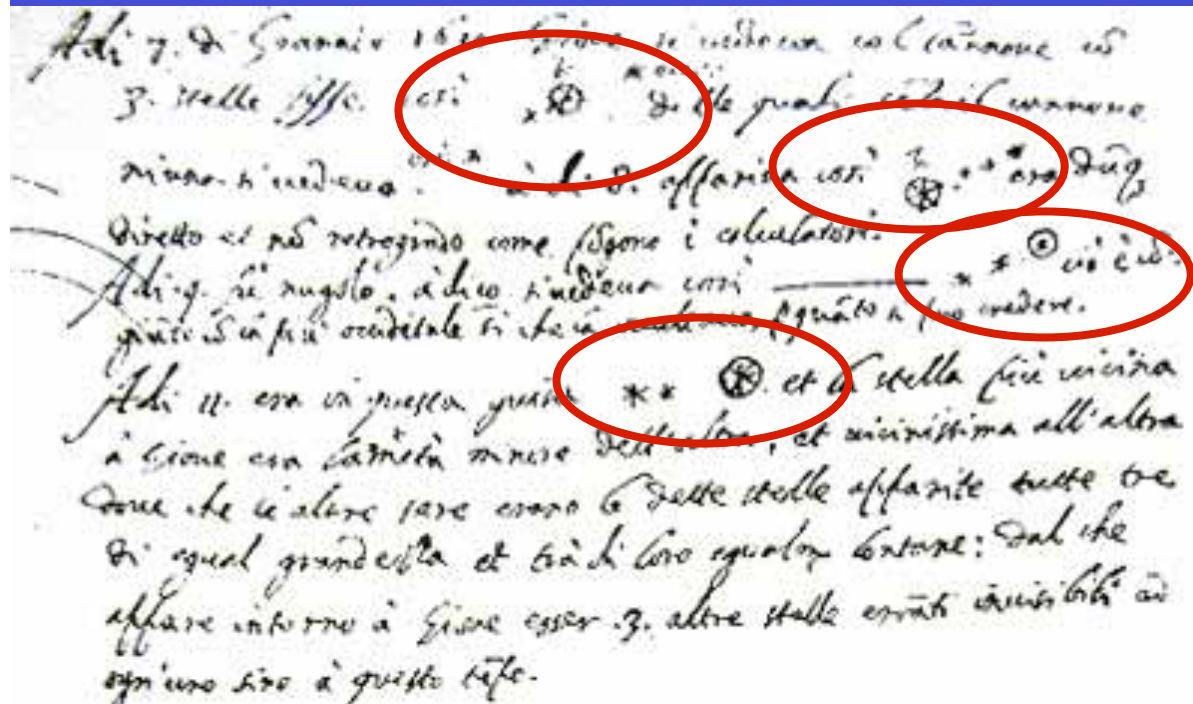 Adi 7. di Gennaio 1610 Giove si vedeva col cannone cõ
3. stelle fisse così delle quali il cannone
niuna si vedeva. à dì 8. appariva così era dũq
diretto et nõ retrogrado come pongono i calculatori.
Adi 9. fù nugolo. à dì 10 si vedeva così cioè cõ
giũto cõ la più occidẽtale si che la p quãto si può credere.
Adi 11. era in questa guisa et la stella più vicina
à Giove era la metà minore dell'altra, et vicinissima all'altra
dove che le altre sere erano le dette stelle apparite tutte tre
di egual grandezza et trà di loro egualm lontane: dal che
appare intorno à Giove esser 3. altre stelle errãti invisibili ad
ogn'uno sino à questo tẽpo.